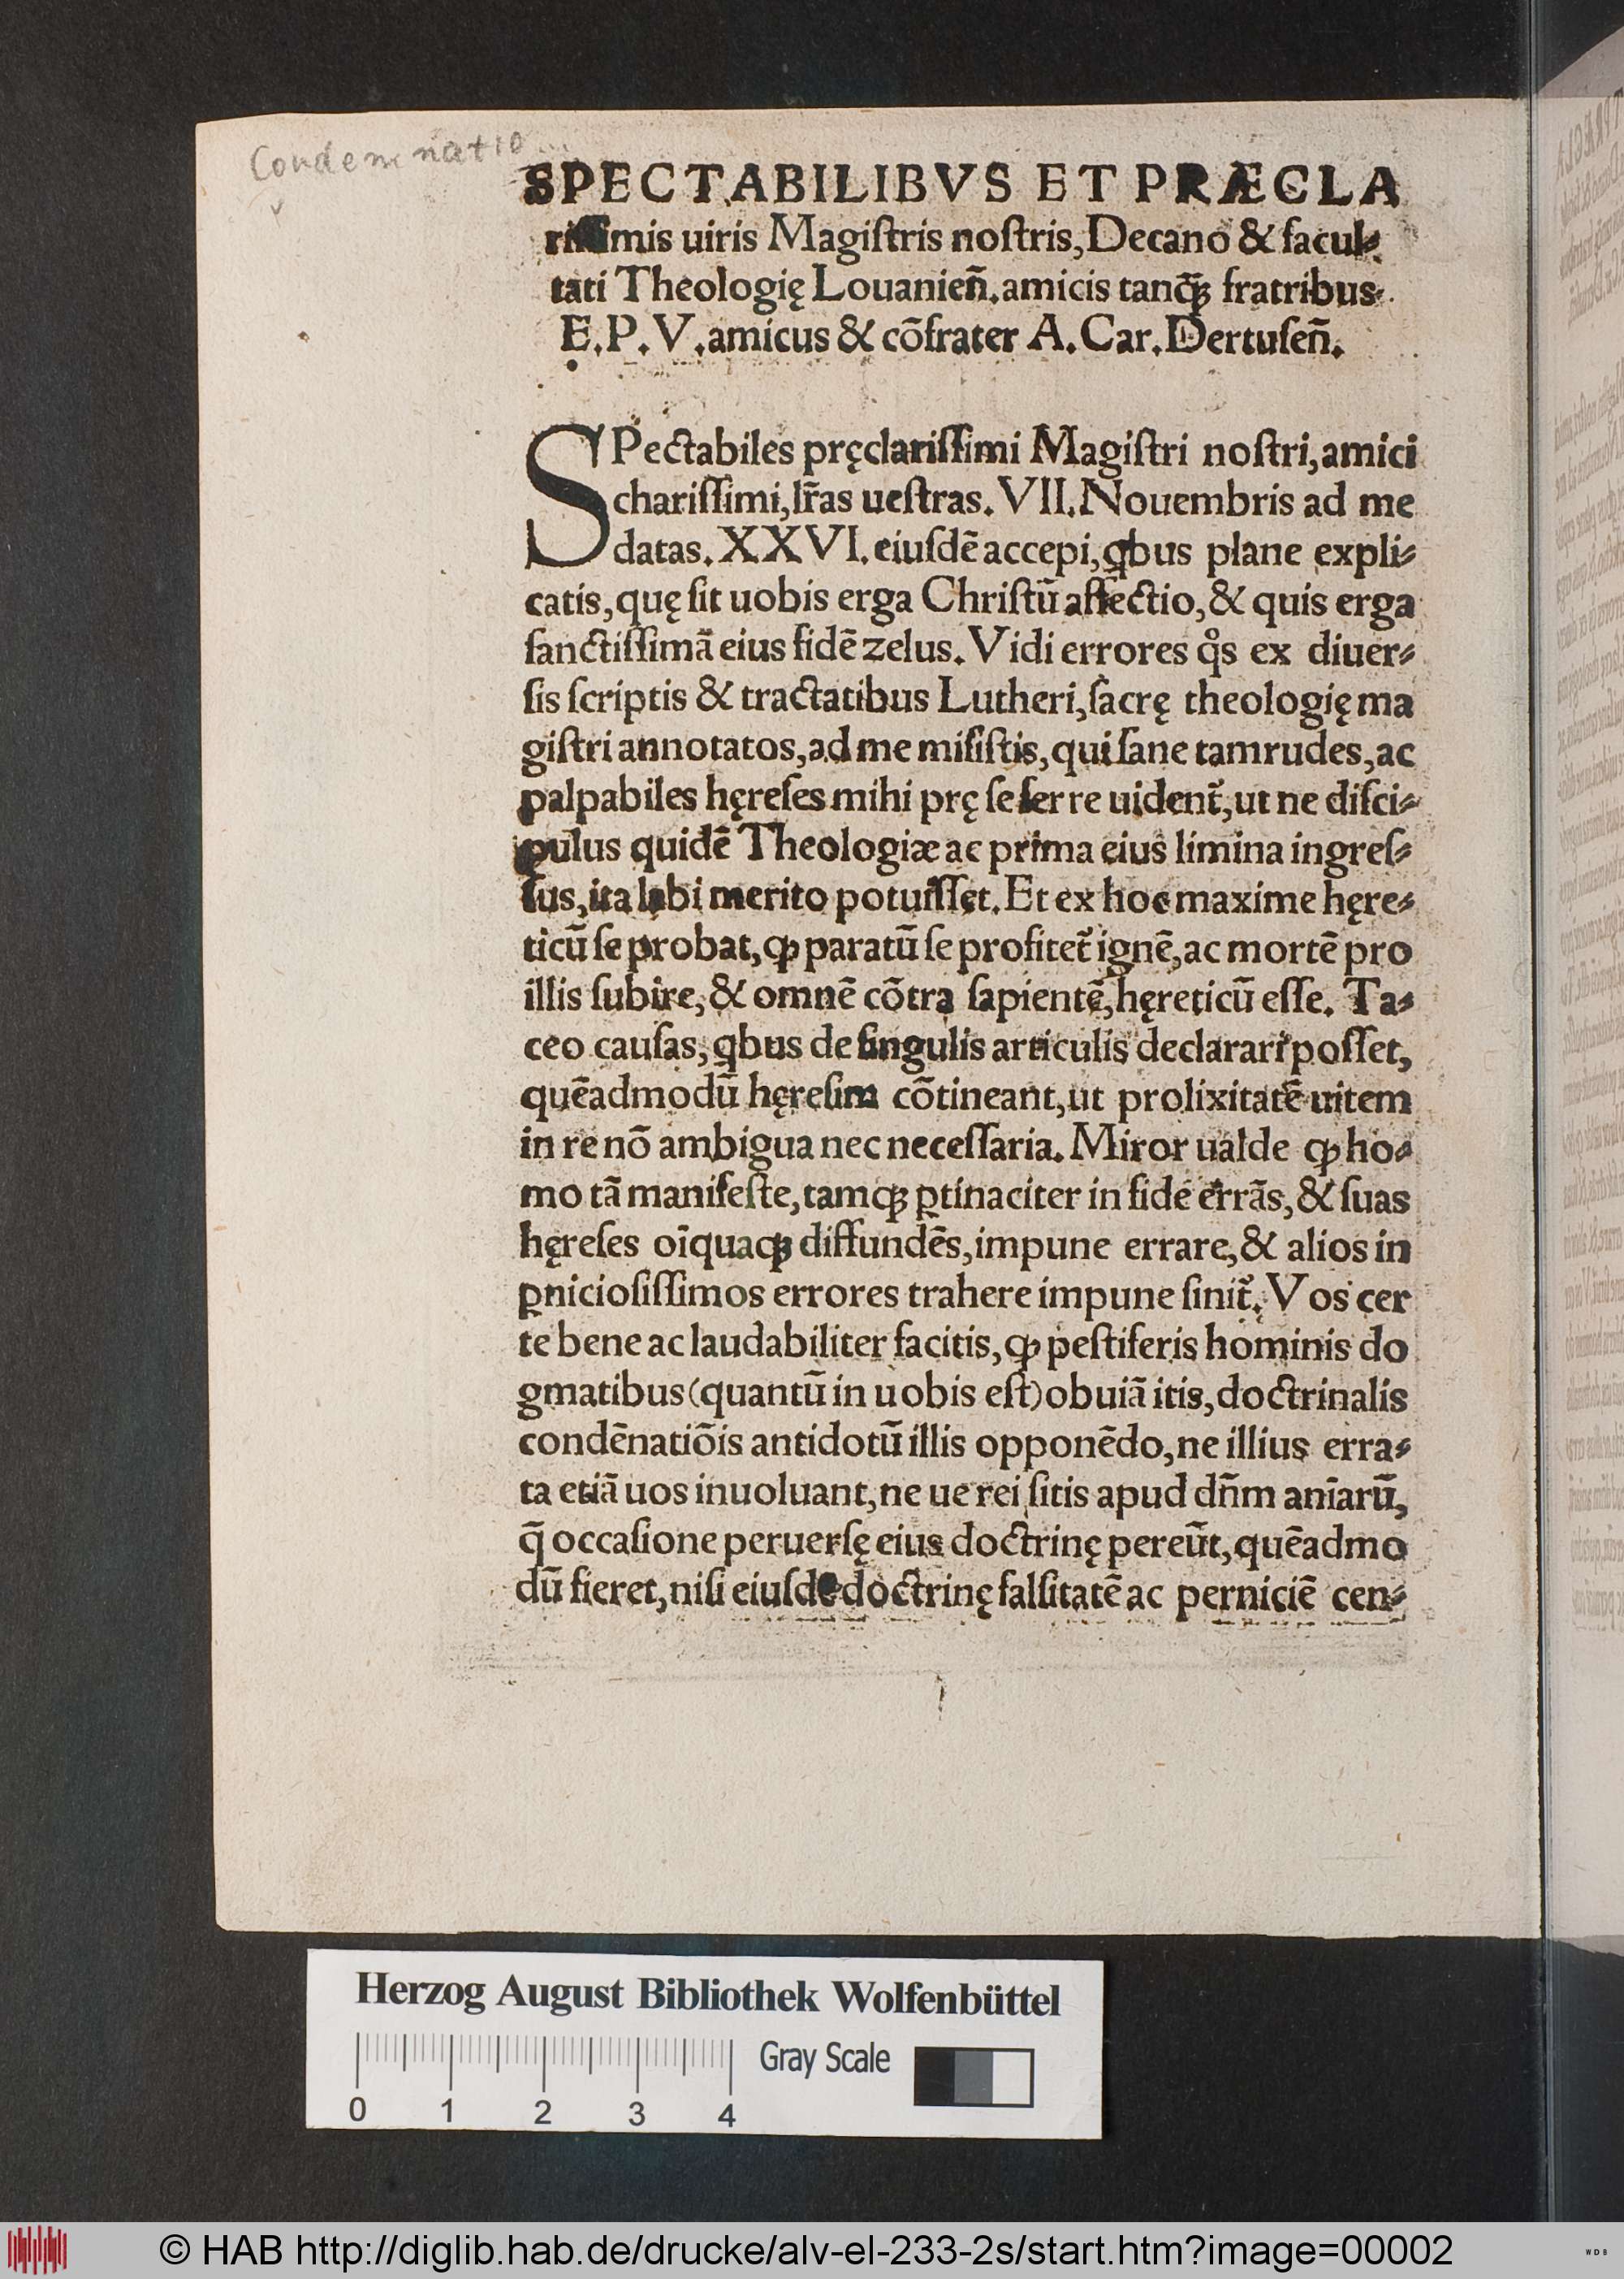 Condemnatio
SPECTABILIBVS ET PRÆCLA
riſſimis uiris Magiſtris noſtris, Decano & facul⸗
tati Theologię Louanien̄. amicis tanq̄ꝫ fratribus.
E. P. V. amicus & cōfrater A. Car. Dertuſen̄.
SPectabiles pręclariſſimi Magiſtri noſtri, amici
chariſſimi, lr̄as ueſtras. VII. Nouembris ad me
datas. XXVI. eiuſdē accepi, qbus plane expli⸗
catis, quę ſit uobis erga Chriſtū affectio, & quis erga
ſanctiſſimā eius fidē zelus. Vidi errores qͦs ex diuer⸗
ſis ſcriptis & tractatibus Lutheri, ſacrę theologię ma
giſtri annotatos, ad me miſiſtis, qui ſane tam rudes, ac
palpabiles hęreſes mihi prę ſe ferre uident̃, ut ne diſci⸗
pulus quidē Theologiæ ac prima eius limina ingreſ⸗
ſus, ita labi merito potuiſſet. Et ex hoc maxime hęre⸗
ticū ſe probat, ꝙ paratū ſe profitet̃ ignē, ac mortē pro
illis ſubire, & omnē cōtra ſapientē, hęreticū eſſe. Ta⸗
ceo cauſas, qbus de ſingulis articulis declarari poſſet,
quēadmodū hęreſim cōtineant, ut prolixitatē uitem
in re nō ambigua nec neceſſaria. Miror ualde ꝙ ho⸗
mo tā manifeſte, tamqꝫ ꝑtinaciter in fide errās, & ſuas
hęreſes oīquaqꝫ diffundēs, impune errare, & alios in
ꝑnicioſiſſimos errores trahere impune ſinit̃. Vos cer
te bene ac laudabiliter facitis, ꝙ peſtiferis hominis do
gmatibus (quantū in uobis eſt) obuiā itis, doctrinalis
condēnatiōis antidotū illis opponēdo, ne illius erra⸗
ta etiā uos inuoluant, ne ue rei ſitis apud dn̄m anīarū,
q̄ occaſione peruerſę eius doctrinę pereūt, quēadmo
dū fieret, niſi eiuſdē doctrinę falſitatē ac perniciē cen⸗
Herzog August Bibliothek Wolfenbüttel
Gray Scale
0 1 2 3 4
© HAB http://diglib.hab.de/drucke/alv-el-233-2s/start.htm?image=00002
WDB